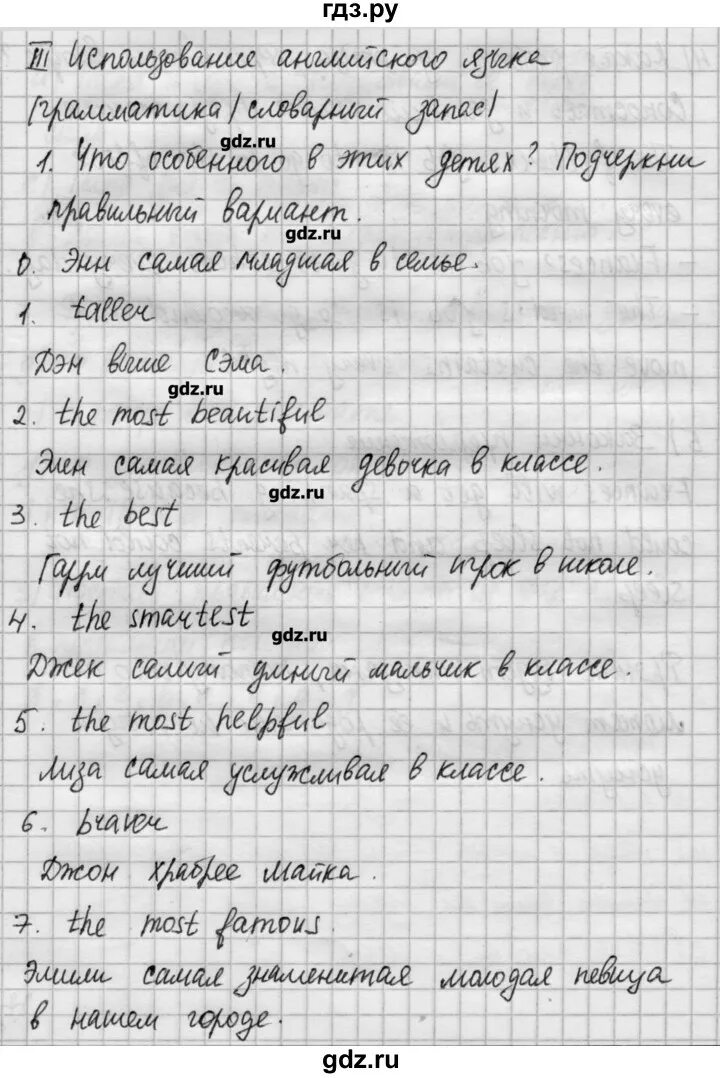 гдз.ру
III Использование английского языка
(грамматика/словарный запас)
gdz.ru
1. Что особенного в этих детях? Подчеркни
правильный вариант.
gdz.ru
0. Энн самая младшая в семье.
1. taller
Дэн выше Сэма.
gdz.ru
2. the most beautiful
Элен самая красивая девочка в классе.
gdz.ru
3. the best
Гарри лучший футбольный игрок в школе.
4. the smartest
gdz.ru
Джек самый умный мальчик в классе.
5. the most helpful
Лиза самая услужливая в классе.
6. braver
Джон храбрее Майка.
7. the most famous
Эмили самая знаменитая молодая певица
в нашем городе.
gdz.ru